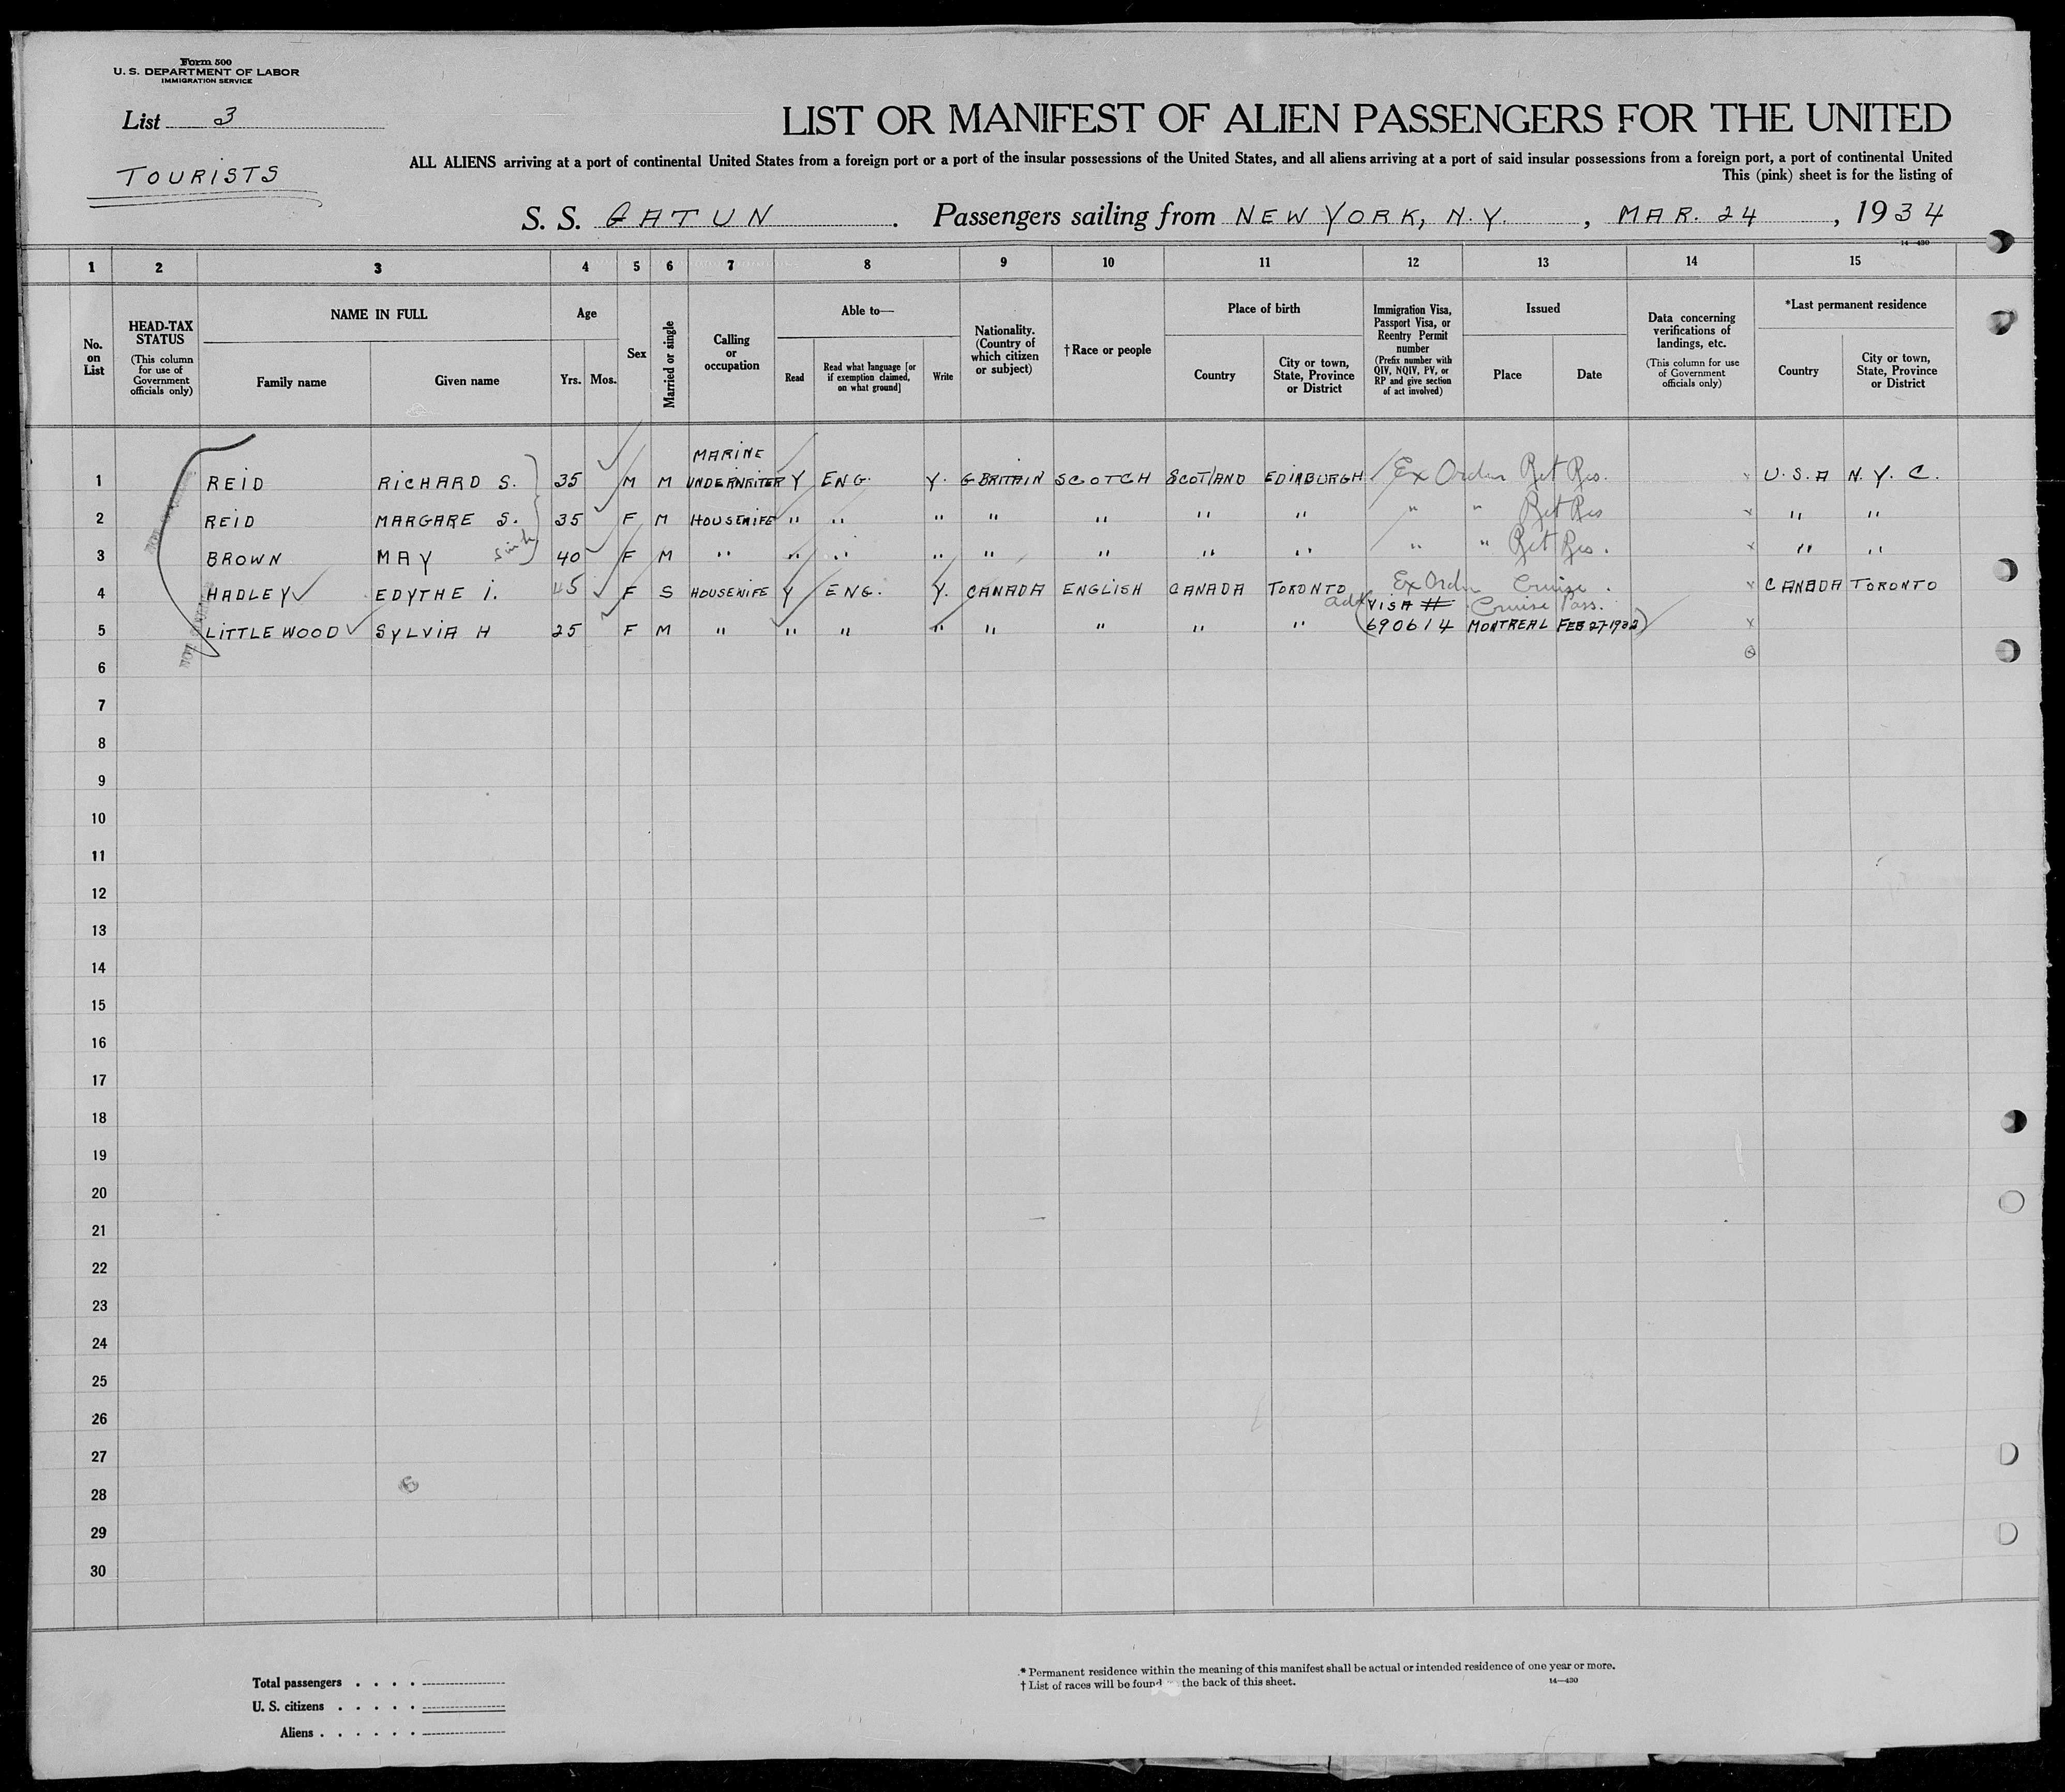 Form 500
U. S. DEPARTMENT OF LABOR
IMMIGRATION SERVICE
List 3
TOURISTS
LIST OR MANIFEST OF ALIEN PASSENGERS FOR THE UNITED
ALL ALIENS arriving at a port of continental United States from a foreign port or a port of the insular possessions of the United States, and all aliens arriving at a port of said insular possessions from a foreign port, a port of continental United
This (pink) sheet is for the listing of
S. S. GATUN. Passengers sailing from NEW YORK, N.Y., MAR. 24, 1934
14—430
1 2 3 4 5 6 7 8 9 10 11 12 13 14 15
No. on List
HEAD-TAX STATUS
(This column for use of Government officials only)
NAME IN FULL
Family name
Given name
Age
Yrs. Mos.
Sex
Married or single
Calling or occupation
Able to—
Read
Read what language [or if exemption claimed, on what ground]
Write
Nationality. (Country of which citizen or subject)
†Race or people
Place of birth
Country
City or town, State, Province or District
Immigration Visa, Passport Visa, or Reentry Permit number
(Prefix number with QIV, NQIV, PV, or RP and give section of act involved)
Issued
Place
Date
Data concerning verifications of landings, etc.
(This column for use of Government officials only)
*Last permanent residence
Country
City or town, State, Province or District
1 REID RICHARD S. 35 M M MARINE UNDERWRITER Y ENG. Y. G BRITAIN SCOTCH SCOTLAND EDINBURGH Ex Order Ret Res. x U.S.A N.Y.C.
2 REID MARGARE S. 35 F M HOUSEWIFE " " " " " " " " " Ret Res x " "
3 BROWN MAY 40 F M " " " " " " " " " " Ret Res. x " "
4 HADLEY EDYTHE I. 45 F S HOUSEWIFE Y ENG. Y. CANADA ENGLISH CANADA TORONTO Ex Ord Cruise. x CANADA TORONTO
VISA # Cruise Pass.
5 LITTLEWOOD SYLVIA H 25 F M " " " " " " " " (690614 MONTREAL FEB 27-1933) x
6
7
8
9
10
11
12
13
14
15
16
17
18
19
20
21
22
23
24
25
26
27
28
29
30
Total passengers . . . .
U. S. citizens . . . . .
Aliens . . . . . .
* Permanent residence within the meaning of this manifest shall be actual or intended residence of one year or more.
† List of races will be found the back of this sheet.
14—430